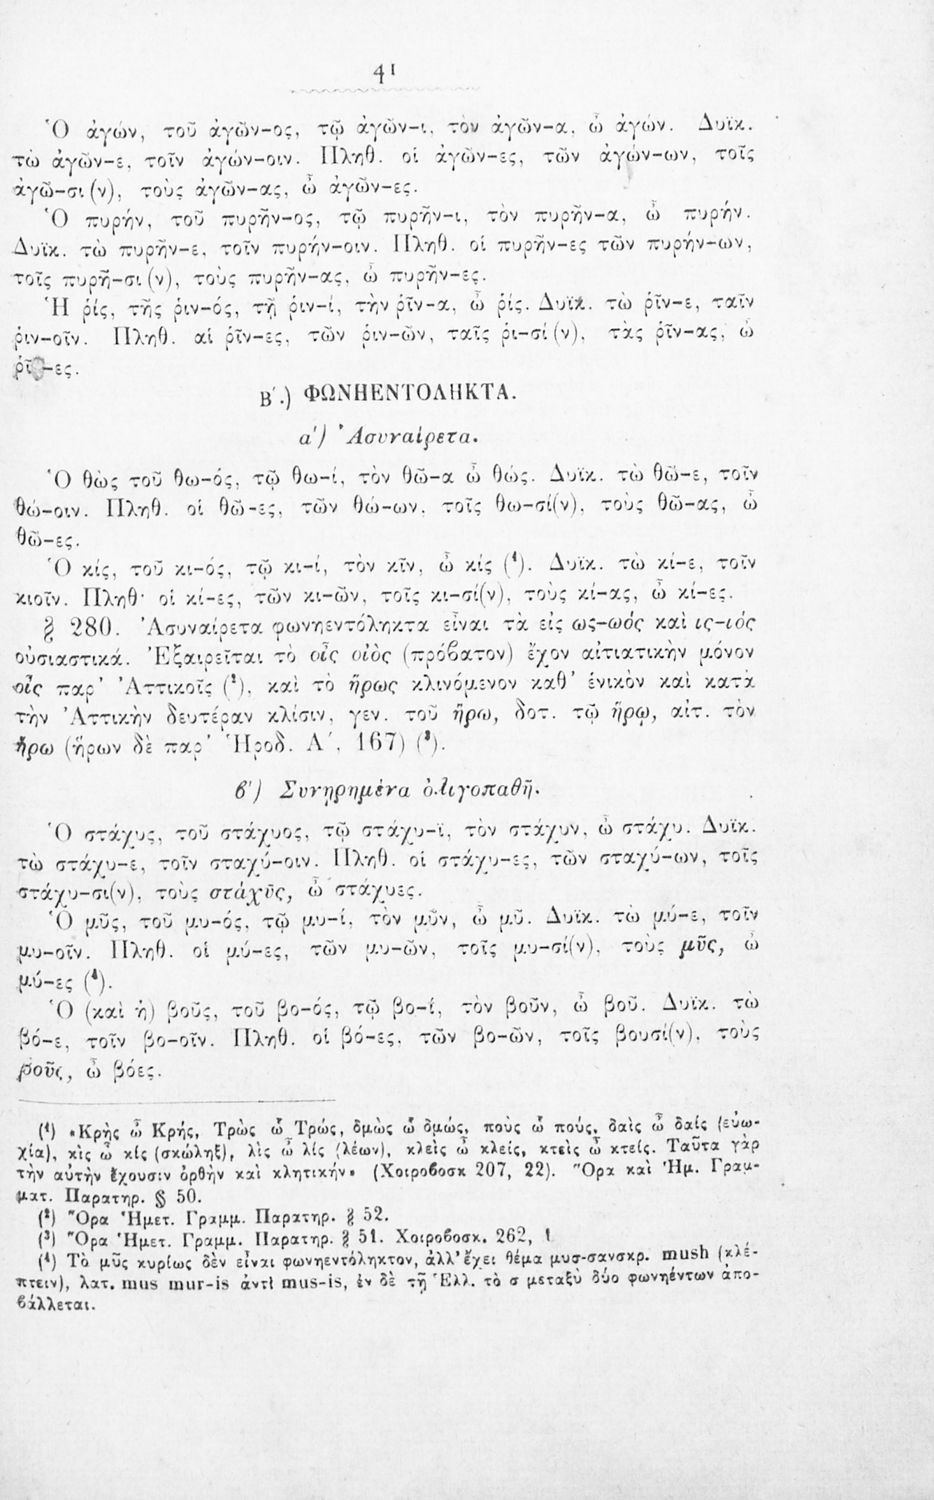 41
Ὁ ἀγών, τοῦ ἀγῶν-ος, τῷ ἀγῶν-ι, τὸν ἀγῶν-α, ὦ ἀγών. Δυϊκ.
τὼ ἀγῶν-ε, τοῖν ἀγών-οιν. Πληθ. οἱ ἀγῶν-ες, τῶν ἀγών-ων, τοῖς
ἀγῶ-σι(ν), τοὺς ἀγῶν-ας, ὦ ἀγῶν-ες.
Ὁ πυρήν, τοῦ πυρῆν-ος, τῷ πυρῆν-ι, τὸν πυρῆν-α, ὦ πυρήν.
Δυϊκ. τὼ πυρῆν-ε, τοῖν πυρήν-οιν. Πληθ. οἱ πυρῆν-ες τῶν πυρήν-ων,
τοῖς πυρῆ-σι(ν), τοὺς πυρῆν-ας, ὦ πυρῆν-ες.
Ἡ ῥίς, τῆς ῥιν-ός, τῇ ῥιν-ί, τὴν ῥῖν-α, ὦ ῥίς. Δυϊκ. τὼ ῥῖν-ε, ταῖν
ῥιν-οῖν. Πληθ. αἱ ῥῖν-ες, τῶν ῥιν-ῶν, ταῖς ῥι-σί(ν), τὰς ῥῖν-ας, ὦ
ῥῖν-ες.
Β΄.) ΦΩΝΗΕΝΤΟΛΗΚΤΑ.
α΄) Ἀσυναίρετα.
Ὁ θὼς τοῦ θω-ός, τῷ θω-ί, τὸν θῶ-α ὦ θώς. Δυϊκ. τὼ θῶ-ε, τοῖν
θώ-οιν. Πληθ. οἱ θῶ-ες, τῶν θώ-ων, τοῖς θω-σί(ν), τοὺς θῶ-ας, ὦ
θῶ-ες.
Ὁ κίς, τοῦ κι-ός, τῷ κι-ί, τὸν κῖν, ὦ κίς (¹). Δυϊκ. τὼ κί-ε, τοῖν
κιοῖν. Πληθ· οἱ κί-ες, τῶν κι-ῶν, τοῖς κι-σί(ν), τοὺς κί-ας, ὦ κί-ες.
§ 280. Ἀσυναίρετα φωνηεντόληκτα εἶναι τὰ εἰς ως-ωός καὶ ις-ιός
οὐσιαστικά. Ἐξαιρεῖται τὸ οἶς οἰὸς (πρόβατον) ἔχον αἰτιατικὴν μόνον
οἶς παρ᾽ Ἀττικοῖς (²), καὶ τὸ ἥρως κλινόμενον καθ᾽ ἑνικὸν καὶ κατὰ
τὴν Ἀττικὴν δευτέραν κλίσιν, γεν. τοῦ ἥρω, δοτ. τῷ ἥρῳ, αἰτ. τὸν
ἥρω (ἥρων δὲ παρ᾽ Ἡροδ. Α΄, 167) (³).
β΄) Συνῃρημένα ὀλιγοπαθῆ.
Ὁ στάχυς, τοῦ στάχυος, τῷ στάχυ-ϊ, τὸν στάχυν, ὦ στάχυ. Δυϊκ.
τὼ στάχυ-ε, τοῖν σταχύ-οιν. Πληθ. οἱ στάχυ-ες, τῶν σταχύ-ων, τοῖς
στάχυ-σι(ν), τοὺς στάχῦς, ὦ στάχυες.
Ὁ μῦς, τοῦ μυ-ός, τῷ μυ-ί, τὸν μῦν, ὦ μῦ. Δυϊκ. τὼ μύ-ε, τοῖν
μυ-οῖν. Πληθ. οἱ μύ-ες, τῶν μυ-ῶν, τοῖς μυ-σί(ν), τοὺς μῦς, ὦ
μύ-ες (⁴).
Ὁ (καὶ ἡ) βοῦς, τοῦ βο-ός, τῷ βο-ί, τὸν βοῦν, ὦ βοῦ. Δυϊκ. τὼ
βό-ε, τοῖν βο-οῖν. Πληθ. οἱ βό-ες, τῶν βο-ῶν, τοῖς βουσί(ν), τοὺς
βοῦς, ὦ βόες.
(¹) «Κρὴς ὦ Κρής, Τρὼς ὦ Τρώς, δμὼς ὦ δμώς, ποὺς ὦ πούς, δαὶς ὦ δαίς (εὐω-
χία), κὶς ὦ κίς (σκώληξ), λὶς ὦ λίς (λέων), κλεὶς ὦ κλείς, κτεὶς ὦ κτείς. Ταῦτα γὰρ
τὴν αὐτὴν ἔχουσιν ὀρθὴν καὶ κλητικήν» (Χοιροβοσκ 207, 22). Ὅρα καὶ Ἡμ. Γραμ-
ματ. Παρατηρ. § 50.
(²) Ὅρα Ἡμετ. Γραμμ. Παρατηρ. § 52.
(³) Ὅρα Ἡμετ. Γραμμ. Παρατηρ. § 51. Χοιροβοσκ. 262, 1
(⁴) Τὸ μῦς κυρίως δὲν εἶναι φωνηεντόληκτον, ἀλλ᾽ ἔχει θέμα μυσ-σανσκρ. mush (κλέ-
πτειν), λατ. mus mur-is ἀντὶ mus-is, ἐν δὲ τῇ Ἑλλ. τὸ σ μεταξὺ δύο φωνηέντων ἀπο-
βάλλεται.